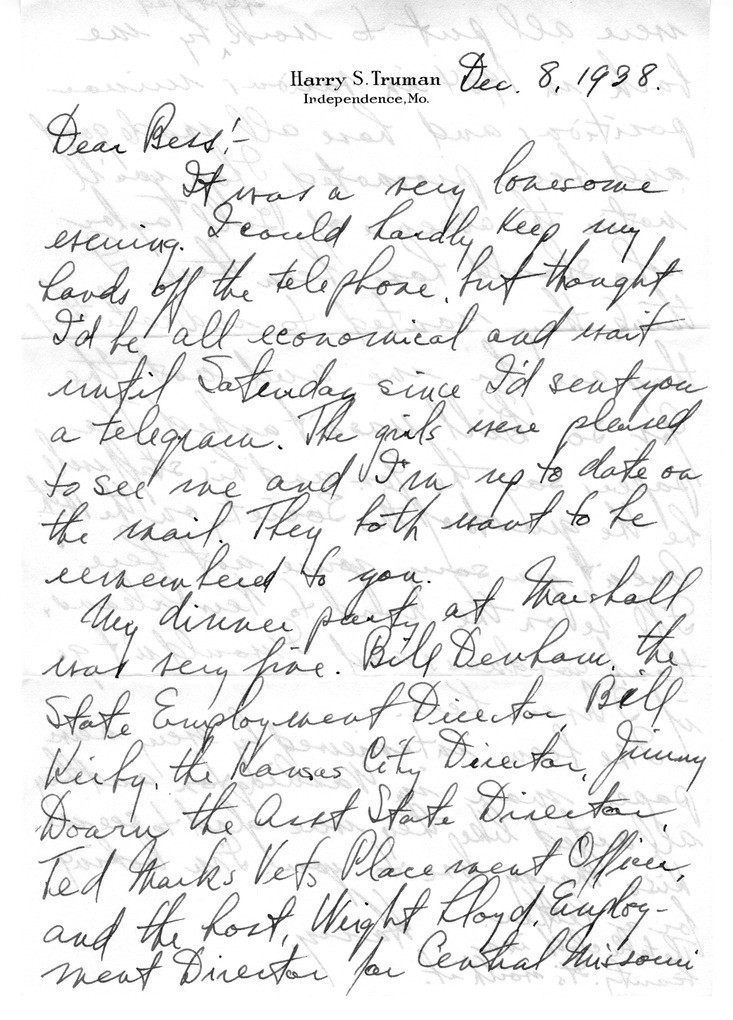 Harry S. Truman
Independence, Mo.
Dec. 8, 1938.
Dear Bess:-
It was a very lonesome
evening. I could hardly keep my
hands off the telephone, but thought
I'd be all economical and wait
until Saturday since I'd sent you
a telegram. The girls were pleased
to see me and I'm up to date on
the mail. They both want to be
remembered to you.
My dinner party at Marshall
was very fine. Bill Denham, the
State Employment Director, Bill
Kirby, the Kansas City Director, Jimmy
Doarn the Asst State Director,
Ted Marks Vets Placement Officer,
and the host, Wright Lloyd, Employ-
ment Director for Central Missouri